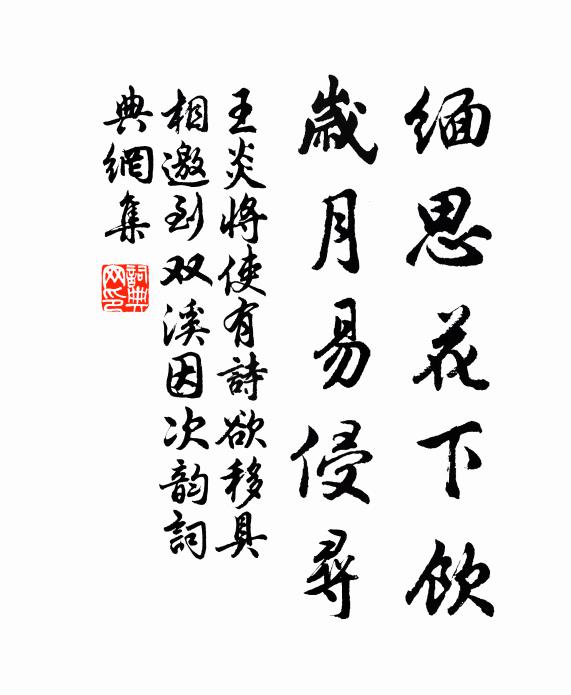 缅思花下飲
歲月易侵尋
王炎將使有詩欲移具
相邀到双溪因次韵詞
典網集
詞典网印